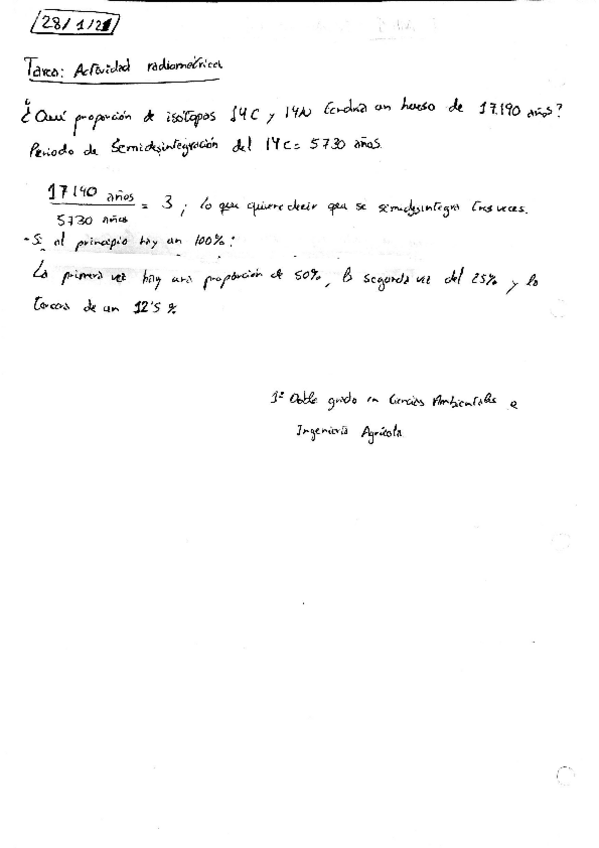 28/1/21
Tarea: Actividad radiométrica
¿Qué proporción de isótopos 14C y 14N tendría un hueso de 17.190 años?
Periodo de Semidesintegración del 14C = 5730 años.
17190 años
5730 años
= 3 ; lo que quiere decir que se semidesintegra tres veces.
- Si al principio hay un 100%:
La primera vez hay una proporción de 50%, la segunda vez del 25% y la
tercera de un 12'5 %
1º Doble grado en Ciencias Ambientales e
Ingeniería Agrícola